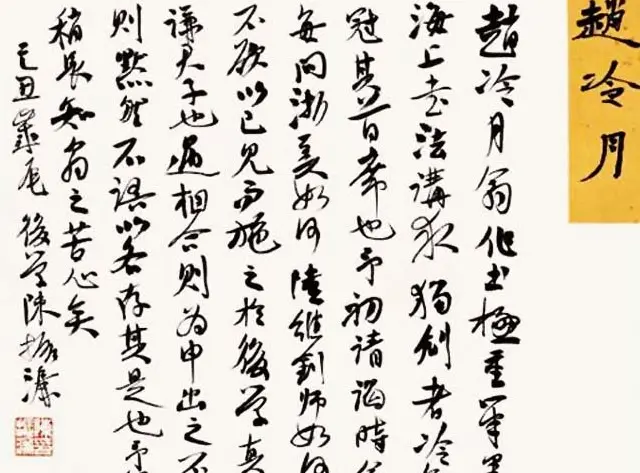 趙冷月
趙冷月翁作書極重筆墨
海上書法講求獨創者冷
冠其首席也予初請謁時
每問浙美如何陸維釗師如何
不欲以己見而施之於後學真
謙君子也遇相合則為申出之不
則默然不語以各存其是也予
稍長知翁之苦心矣
己丑歲尾後學陳振濂